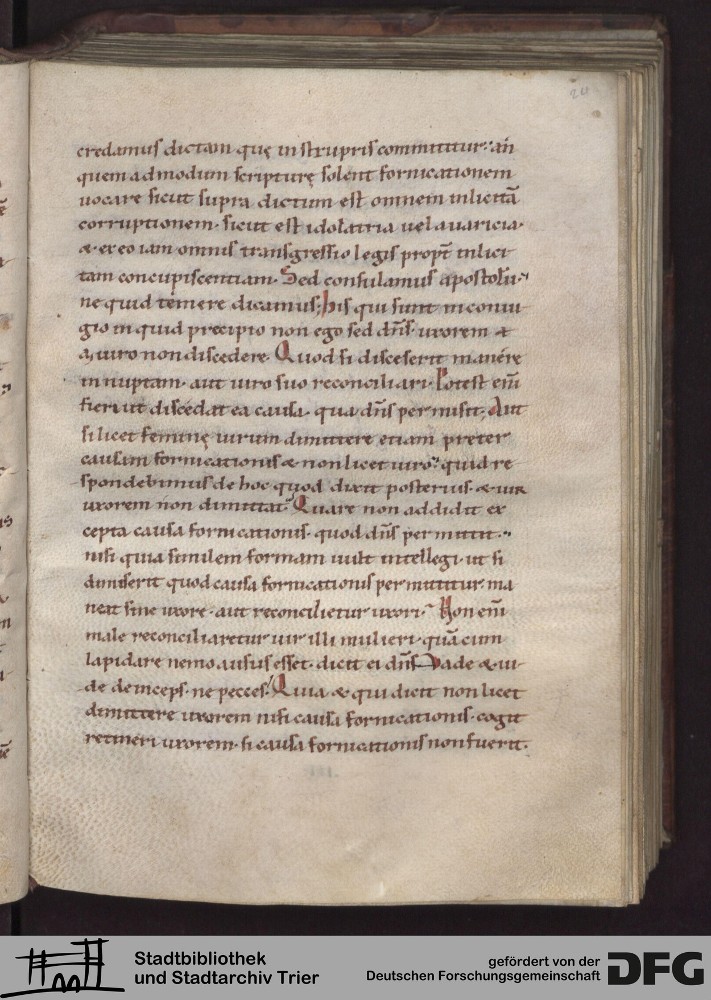 24
credamus dictam quę in strupris committitur· an̄
quemadmodum scripturę solent fornicationem
uocare sicut supra dictum est omnem inlicitā
corruptionem· sicut est idolatria uel auaricia·
& ex eo iam omnis transgressio legis propt̄ inlici
tam concupiscentiam· Sed consulamus apostolū·
ne quid temere dicamus; His qui sunt in coniu
gio inquid precipio non ego sed dn̄s uxorem a
uiro non discedere· Quod si discesserit manere
innuptam· aut uiro suo reconciliari· Potest eni̅
fieri ut discedat ea causa· qua dn̄s permisit; Aut
si licet feminę uirum dimittere etiam preter
causam fornicationis & non licet uiro· quid re
spondebimus de hoc quod dixit posterius· & uir
uxorem non dimittat· Quare non addidit ex
cepta causa fornicationis· quod dn̄s permittit·
nisi quia similem formam uult intellegi· ut si
dimiserit quod causa fornicationis permittitur ma
neat sine uxore· aut reconcilietur uxori· Non eni̅
male reconciliaretur uir illi mulieri· quā cum
lapidare nemo ausus esset· dicit ei dn̄s Vade & ui
de deinceps· ne pecces· Quia & qui dicit non licet
dimittere uxorem nisi causa fornicationis· cogit
retineri uxorem· si causa fornicationis non fuerit·
Stadtbibliothek
und Stadtarchiv Trier
gefördert von der
Deutschen Forschungsgemeinschaft
DFG